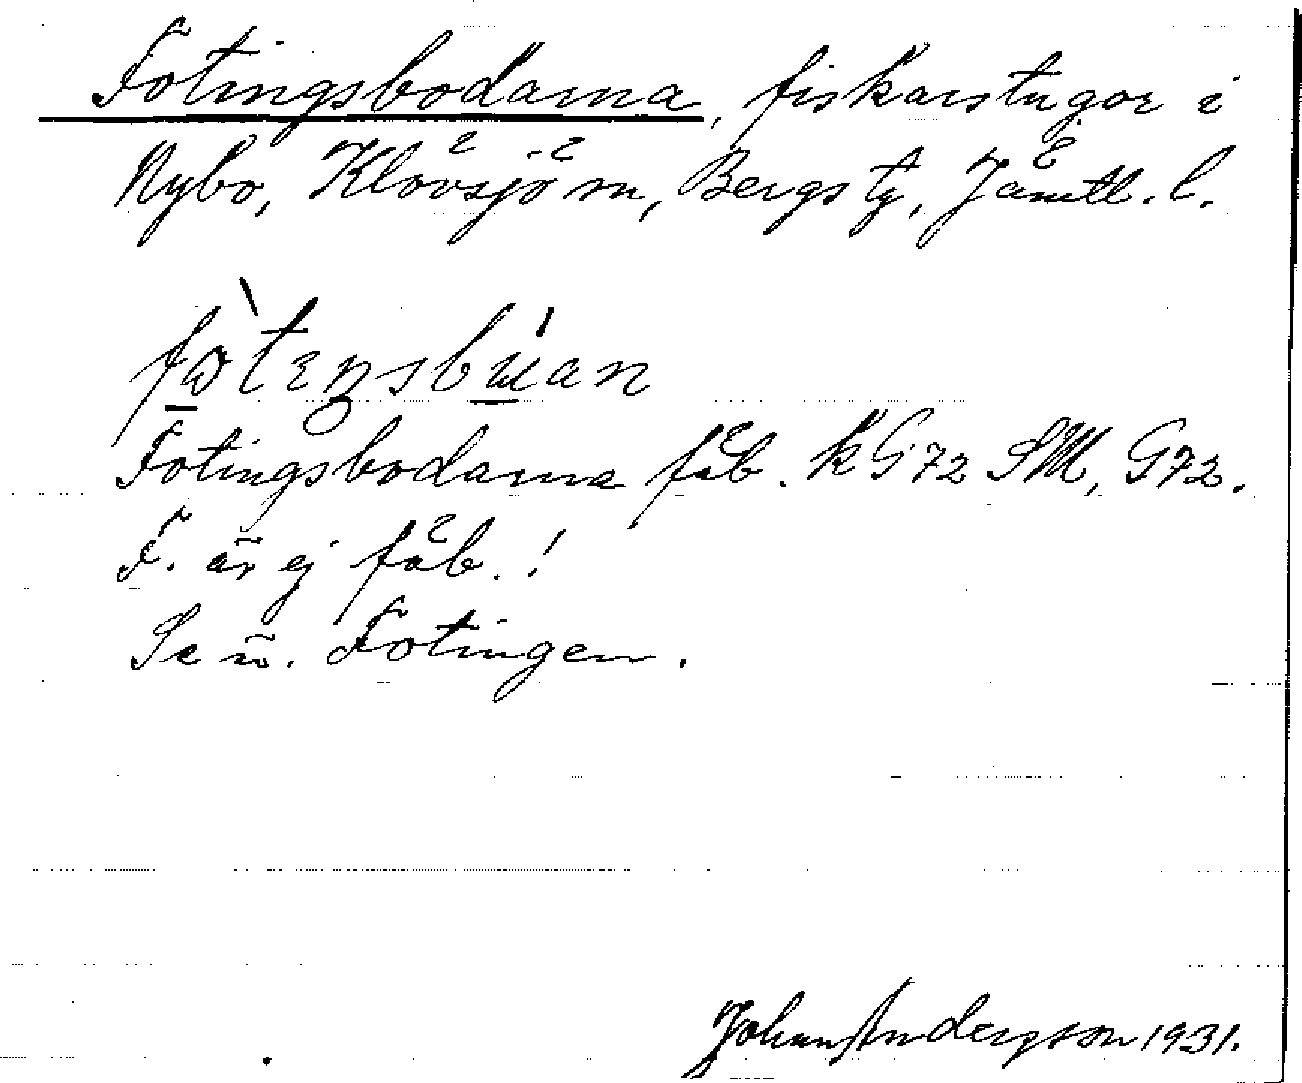 Fotingsbodarna, fiskarstugor i
Nybo, Klövsjö sn, Bergs tg, Jämtl. l.
Fotingsbodarna fäb. kG72 SM, G72.
F. är ej fäb.!
Se ñ. Fotingen.
Johan Andersson 1931.